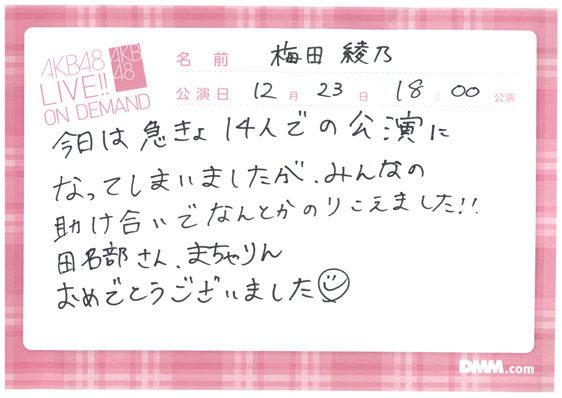 AKB48
LIVE!!
ON DEMAND
AKB
48
名前 梅田 綾乃
公演日 12月 23日 18:00 公演
今日は急きょ14人での公演に
なってしまいましたが、みんなの
助け合いでなんとかのりこえました!!
田名部さん、まちゃりん
おめでとうございました
DMM.com